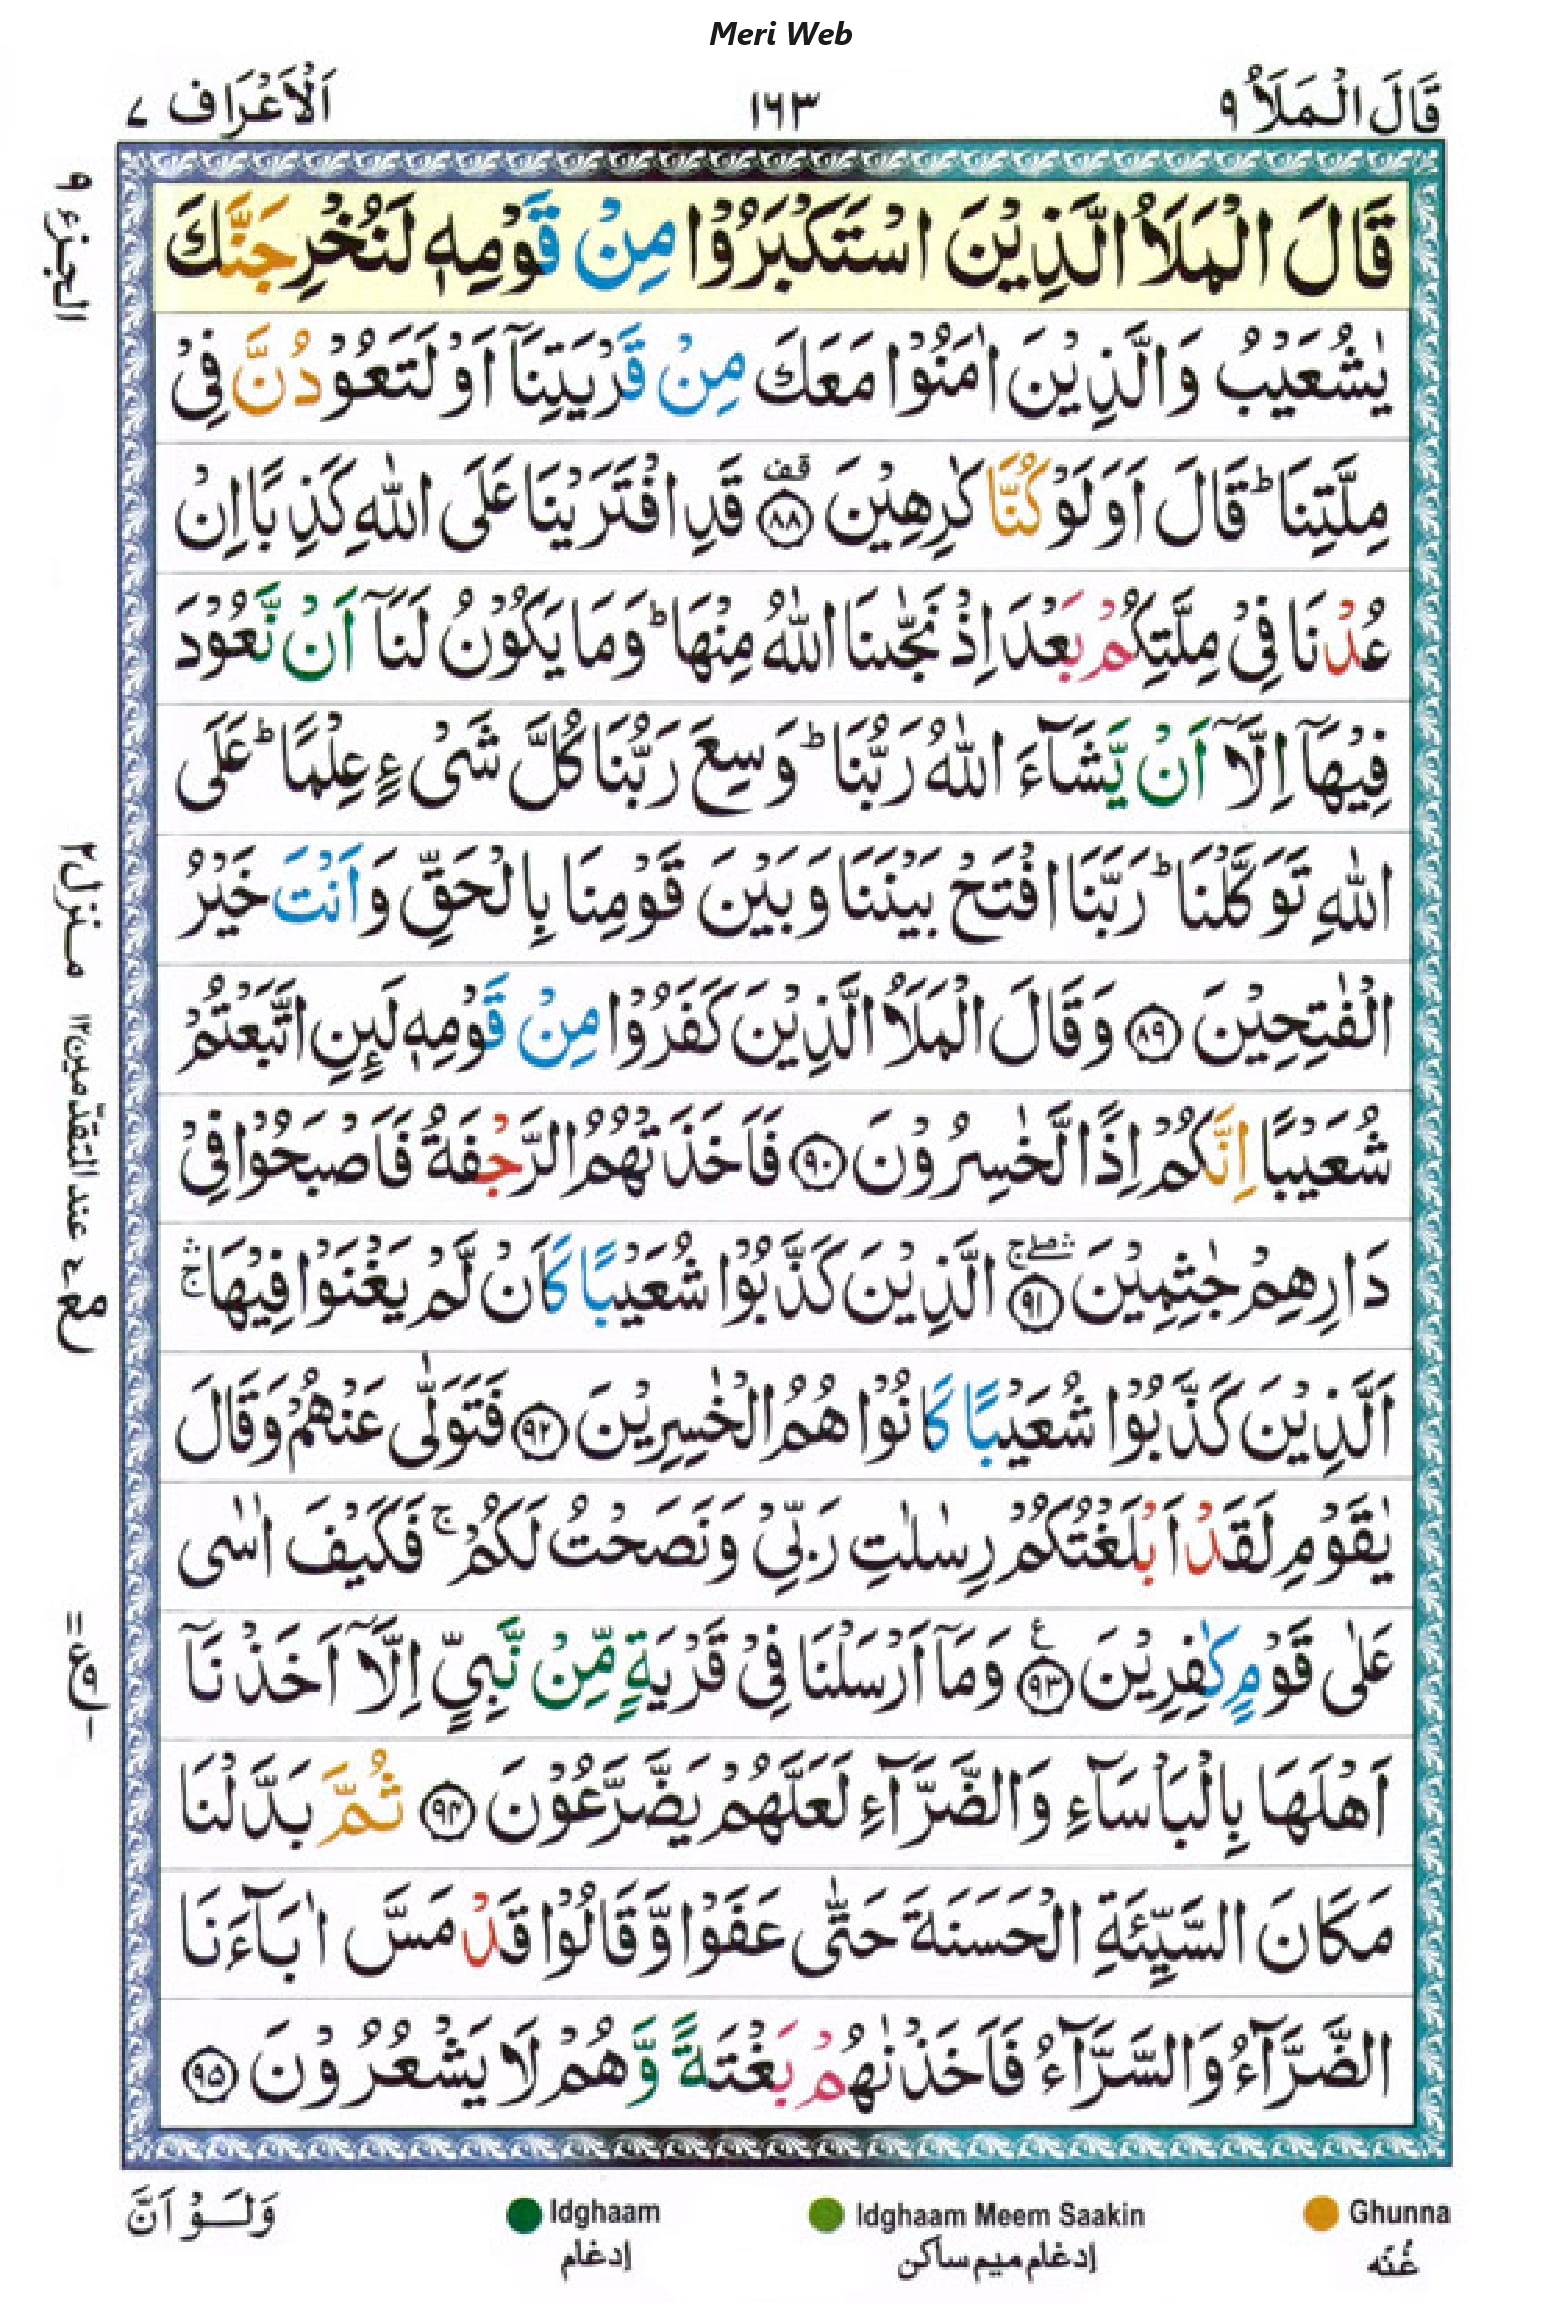 Meri Web
قَالَ الْمَلَاُ ٩
١٦٣
اَلْاَعْرَاف ٧
قَالَ الْمَلَاُ الَّذِيْنَ اسْتَكْبَرُوْا مِنْ قَوْمِهٖ لَنُخْرِجَنَّكَ
يٰشُعَيْبُ وَالَّذِيْنَ اٰمَنُوْا مَعَكَ مِنْ قَرْيَتِنَاۤ اَوْ لَتَعُوْدُنَّ فِيْ
مِلَّتِنَا ؕ قَالَ اَوَلَوْ كُنَّا كٰرِهِيْنَ ﴿٨٨﴾ قف قَدِ افْتَرَيْنَا عَلَى اللّٰهِ كَذِبًا اِنْ
عُدْنَا فِيْ مِلَّتِكُمْ بَعْدَ اِذْ نَجّٰىنَا اللّٰهُ مِنْهَا ؕ وَمَا يَكُوْنُ لَنَاۤ اَنْ نَّعُوْدَ
فِيْهَاۤ اِلَّاۤ اَنْ يَّشَآءَ اللّٰهُ رَبُّنَا ؕ وَسِعَ رَبُّنَا كُلَّ شَيْءٍ عِلْمًا ؕ عَلَى
اللّٰهِ تَوَكَّلْنَا ؕ رَبَّنَا افْتَحْ بَيْنَنَا وَبَيْنَ قَوْمِنَا بِالْحَقِّ وَاَنْتَ خَيْرُ
الْفٰتِحِيْنَ ﴿٨٩﴾ وَقَالَ الْمَلَاُ الَّذِيْنَ كَفَرُوْا مِنْ قَوْمِهٖ لَىِٕنِ اتَّبَعْتُمْ
شُعَيْبًا اِنَّكُمْ اِذًا لَّخٰسِرُوْنَ ﴿٩٠﴾ فَاَخَذَتْهُمُ الرَّجْفَةُ فَاَصْبَحُوْا فِيْ
دَارِهِمْ جٰثِمِيْنَ ﴿٩١﴾ الَّذِيْنَ كَذَّبُوْا شُعَيْبًا كَاَنْ لَّمْ يَغْنَوْا فِيْهَا ۛۚ
اَلَّذِيْنَ كَذَّبُوْا شُعَيْبًا كَانُوْا هُمُ الْخٰسِرِيْنَ ﴿٩٢﴾ فَتَوَلّٰى عَنْهُمْ وَقَالَ
يٰقَوْمِ لَقَدْ اَبْلَغْتُكُمْ رِسٰلٰتِ رَبِّيْ وَنَصَحْتُ لَكُمْ ۚ فَكَيْفَ اٰسٰى
عَلٰى قَوْمٍ كٰفِرِيْنَ ﴿٩٣﴾ ع وَمَاۤ اَرْسَلْنَا فِيْ قَرْيَةٍ مِّنْ نَّبِيٍّ اِلَّاۤ اَخَذْنَاۤ
اَهْلَهَا بِالْبَاْسَآءِ وَالضَّرَّآءِ لَعَلَّهُمْ يَضَّرَّعُوْنَ ﴿٩٤﴾ ثُمَّ بَدَّلْنَا
مَكَانَ السَّيِّئَةِ الْحَسَنَةَ حَتّٰى عَفَوْا وَّقَالُوْا قَدْ مَسَّ اٰبَآءَنَا
الضَّرَّآءُ وَالسَّرَّآءُ فَاَخَذْنٰهُمْ بَغْتَةً وَّهُمْ لَا يَشْعُرُوْنَ ﴿٩٥﴾
الجزء ٩
منزل ٢
وقف عند المتقدّمين ١٢
وَلَــوْ اَنَّ
Idghaam
إدغام
Idghaam Meem Saakin
إدغام ميم ساكن
Ghunna
غُنّه